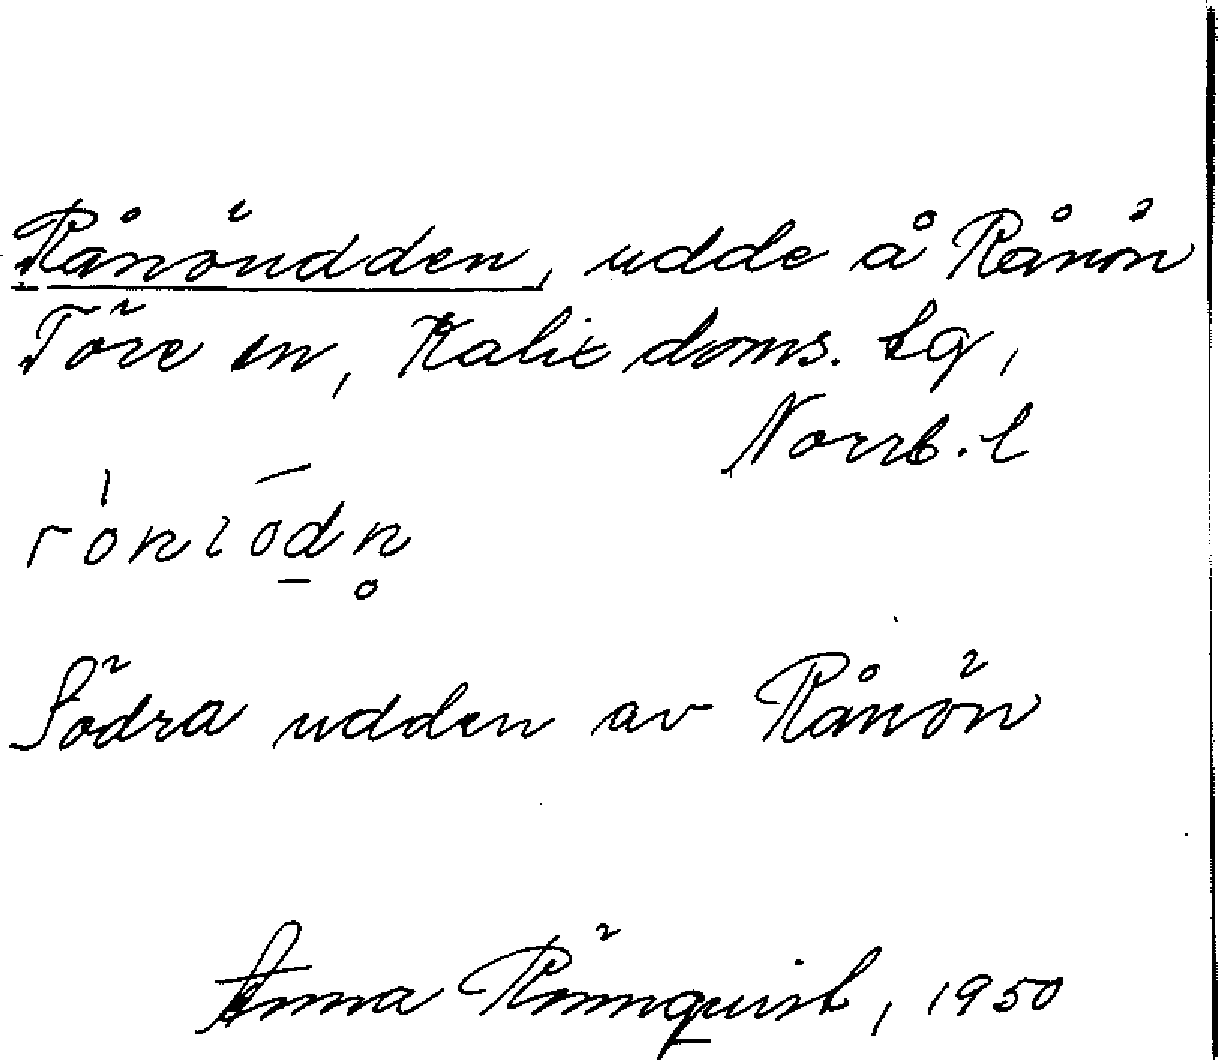 Rånöudden, udde å Rånön
Töre sn, Kalix doms. lg,
Norrb. l
Södra udden av Rånön
Anna Rönnquist, 1950